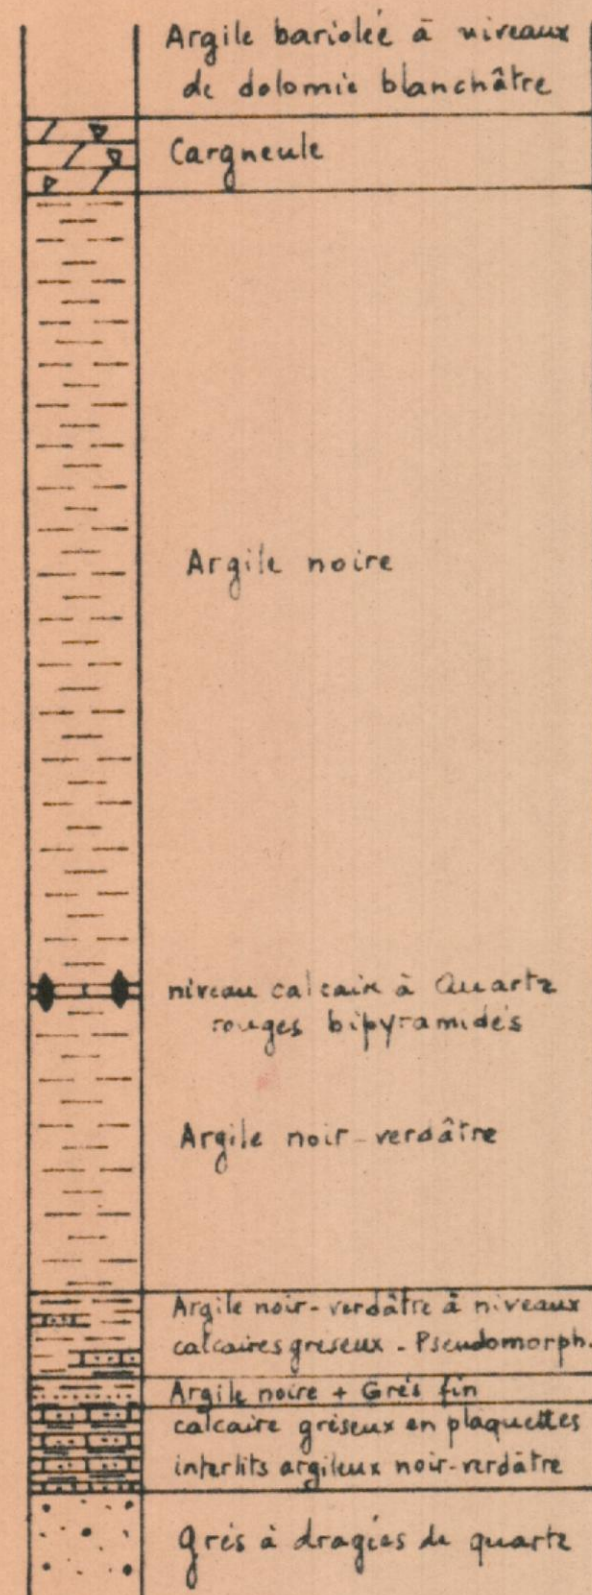 Argile bariolée à niveaux
de dolomie blanchâtre
Cargneule
Argile noire
niveau calcaire à Quartz
rouges bipyramidés
Argile noir-verdâtre
Argile noir-verdâtre à niveaux
calcaires greseux - Pseudomorph.
Argile noire + Grés fin
calcaire gréseux en plaquettes
interlits argileux noir-verdâtre
Grés à dragées de quartz